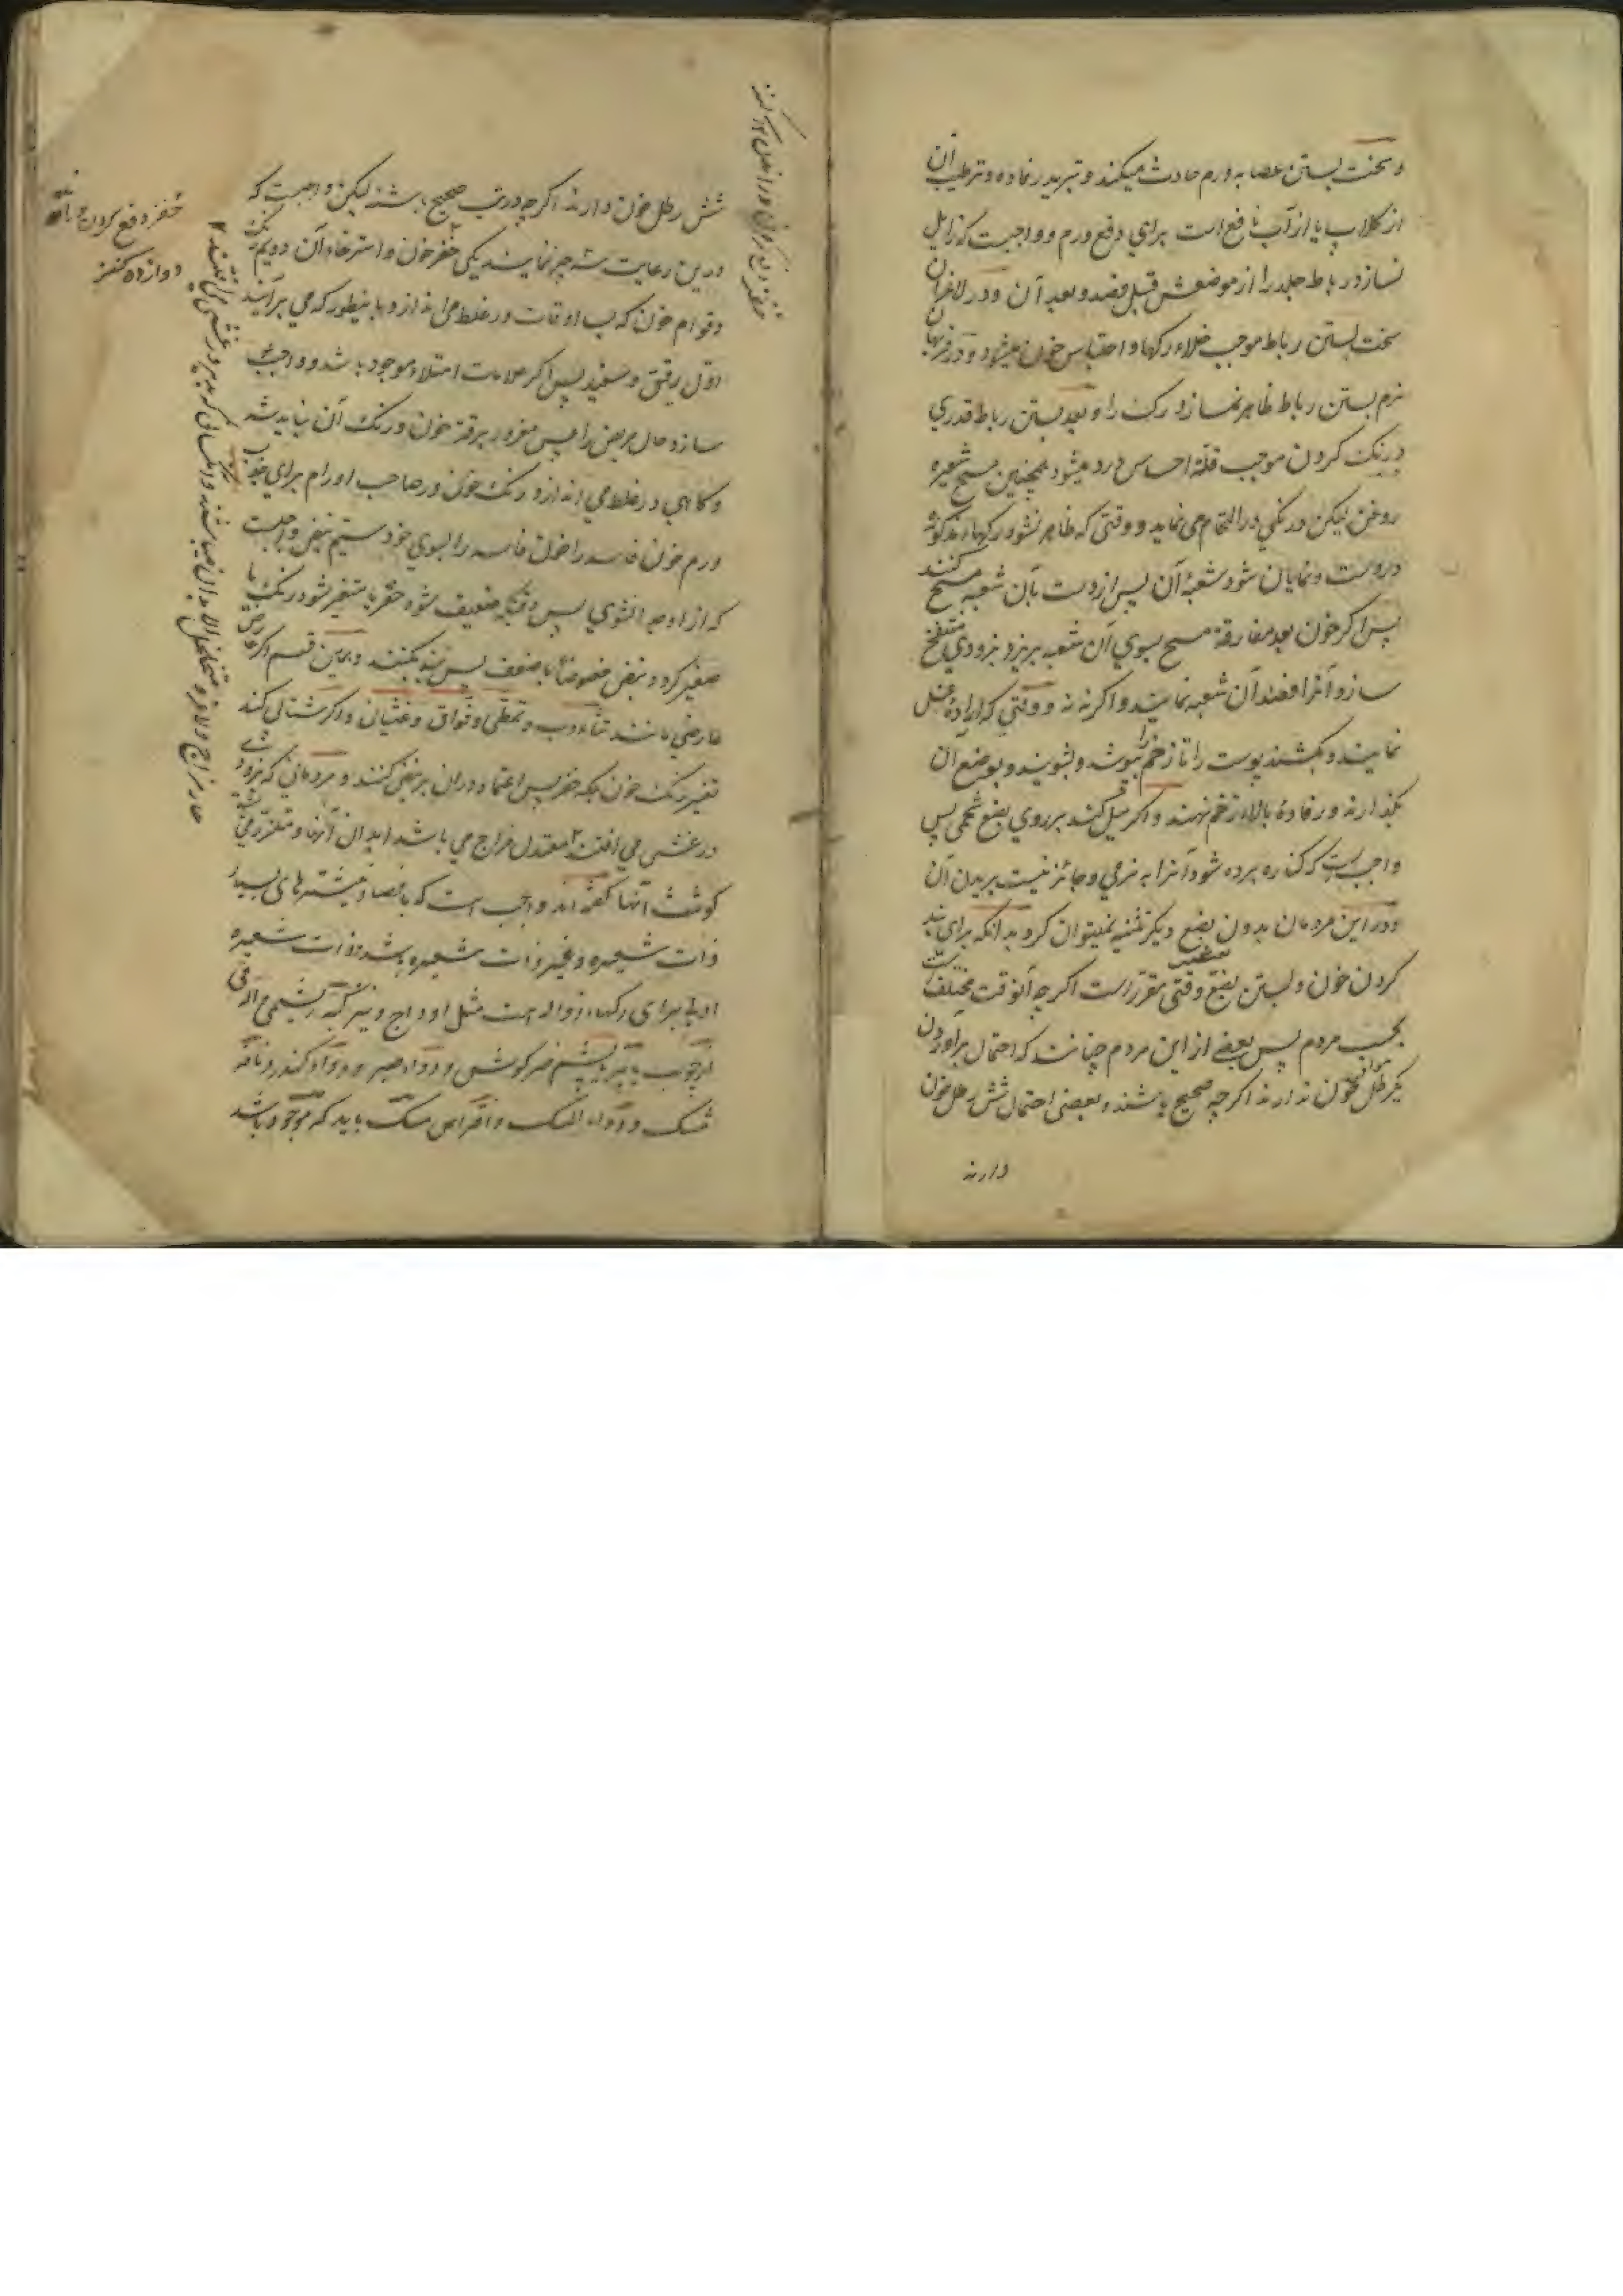 و سخت بستن عصابه ورم حادث میکند و تبرید رفاده و ترطیب آن
از کلاب یا از آب نافع است برای دفع ورم و واجبست که زایل
نسازد رباط جلد را از موضعش قبل فصد و بعد آن و در لاغران
سخت بستن رباط موجب خلاء رکها و احتباس خون میشود و در فربهان
نرم بستن رباط ظاهر نمیسازد رک را و بعد بستن رباط قدری
درنک کردن موجب قلة احساس درد میشود همچنین مسح شعیره
روغن لیکن درنکی در التحام می نماید و وقتی که ظاهر نشود رکهاء مذکوره
در دست و نمایان شود شعبهٔ آن پس از دست بآن شعبه مسح کنند
پس اکر خون بعد مفارقة مسح بسوی آن شعبه بریزد بزودی منتفخ
سازد آنرا فصد آن شعبه نمایند و اکر نه نه و وقتی که ارادهٔ غسل
نمایند بکشند پوست را تا زخم را بپوشد و بشویند و بوضع آن
بکذارند و رفادهٔ بالاء زخم نهند و اکر میل کند بر روی بضع شحمی پس
واجب است که کناره برده شود آنرا به نرمی و جائز نیست بریدن آن
و در این مردمان بدون بضع دیکر تثنیه نمیتوان کرد بدانکه برای بند
کردن خون و بستن بضع وقتی مقرر است اکر چه آنوقت مختلف
بحسب مردم پس بعضی از این مردم چنانند که احتمال برآوردن
یکرطل خون ندارند اکر چه صحیح باشند و بعضی احتمال شش رطل خون
دارند
شش رطل خون دارند اکر چه در تب صحیح باشند لیکن واجبست که
درین رعایت سه چیز نمایند یکی حفز خون و استرخاء آن دویم رنک
و قوام خون که بسا اوقات در غلط می اندازد باینطور که می برآیند
اوّل رقیق و سفید پس اکر علامات امتلاء موجود باشد و واجب
سازد حال مریض را پس مغرور برقة خون و رنک آن نباید شد
و کاهی در غلط می اندازد رنک خون در صاحب اورام برای جذب
ورم خون فاسد را خون فاسد را بسوی خود سیّم نبض واجبست
که از او جدا نشوی پس وقتیکه ضعیف شود حفز یا متغیر شود رنک یا
صغیر کردد نبض خصوصاً با ضعف پس بند بکنند و همین قسم اکر عارض
عارضی مانند تثاءوب و تمطّی و فواق و غثیان و اکر شتابی کند
تغیر رنک خون بلکه حفز پس اعتماد در آن بر نبض کنند و مردمانی که بزودی
در غشی می افتند معتدل مزاج می باشد ابدان آنها و متلزّز می
کوشت آنها کفته اند واجب است که با فصاد نیشترهای بسیار
ذات شعیره و غیر ذات شعیره باشد و ذات شعیره
اولی برای رکهاء زوّاله است مثل اوداج و نیز کبّه ریشمی و آلة قی
از چوب یا پر یا پشم خرکوش و دواء صبر و دواء کندر و نافه
مشک و دواء المسک و اقراص مسک باید که موجود باشد